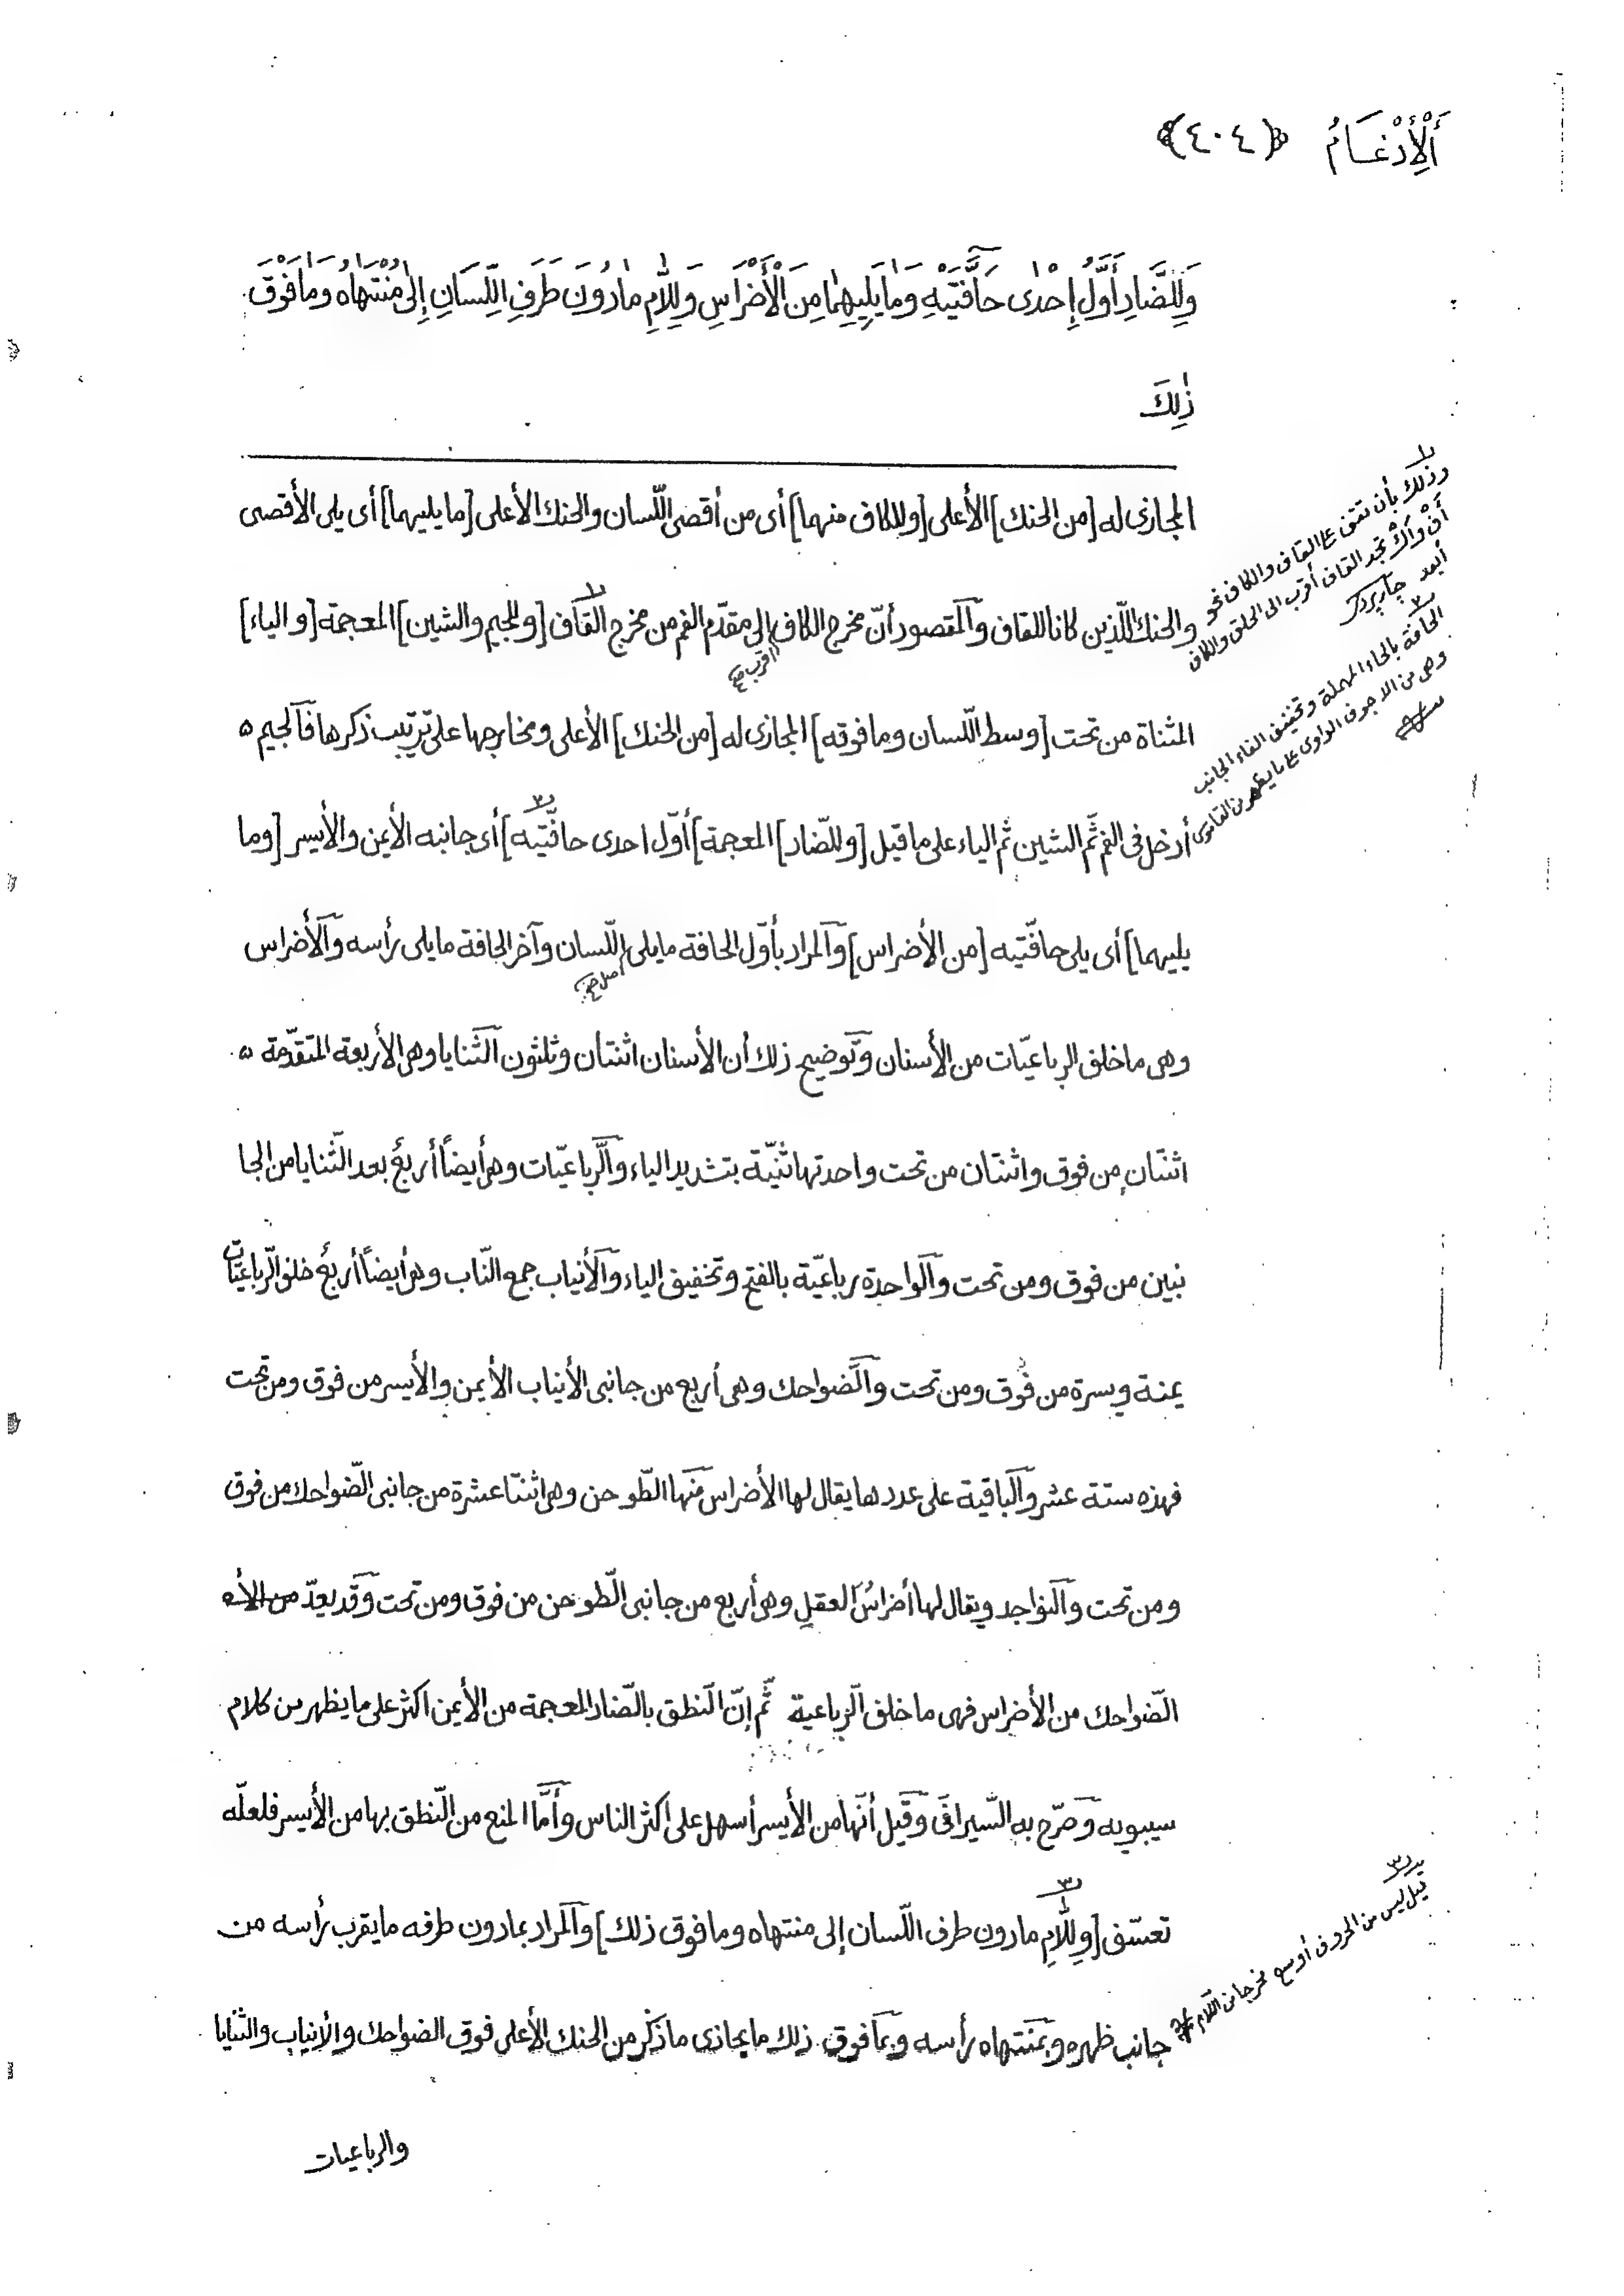 اَلْأِدْغَامُ ﴿٤٠٤﴾
وَلِلضَّادِ أَوَّلُ إِحْدٰى حَافَّتَيْهِ وَمٰا يَلِيهِمٰا مِنَ الْأَضْرٰاسِ وَلِلّٰامِ مٰا دُونَ طَرَفِ اللِّسَانِ إِلىٰ مُنْتَهٰاهُ وَمٰا فَوْقَ
ذٰلِكَ
المجازى له [من الحنك] الأعلى [وللكاف منهما] أى من أقصى اللّسان والحنك الأعلى [ما يليهما] أى يلى الأقصى
والحنك اللّذين كانا للقاف والمقصود أنّ مخرج الكاف إلى مقدّم الفم من مخرج القاف [وللجيم والشين] المعجمة [والياء]
اقرب
المثناة من تحت [وسط اللّسان وما فوقه] المجازى له [من الحنك] الأعلى ومخارجها على ترتيب ذكرها فالجيم
أدخل فى الفم ثمّ الشين ثمّ الياء على ما قيل [وللضّاد] المعجمة] أوّل احدى حافّتيه] أى جانبه الأيمن والأيسر [وما
يليهما] أى يلى حافّتيه [من الأضراس] والمراد بأوّل الحافة ما يلى اللّسان وآخر الحافة ما يلى رأسه والأضراس
اصل
وهى ما خلف الرباعيّات من الأسنان وتوضيح ذلك أن الأسنان اثنتان وثلثون الثنايا وهى الأربعة المتقدّمة
اثنتان من فوق واثنتان من تحت واحدتها ثنيّة بتشديد الياء والرّباعيّات وهى أيضاً أربع بعد الثّنايا من الجا
نبين من فوق ومن تحت والواحدة رباعيّة بالفتح وتخفيف الياء والأنياب جمع النّاب وهى أيضاً أربع خلف الرّباعيّات
يمنة ويسرة من فوق ومن تحت والضواحك وهى أربع من جانبى الأنياب الأيمن والأيسر من فوق ومن تحت
فهذه ستة عشر والباقية على عددها يقال لها الأضراس منها الطّواحن وهى اثنتا عشرة من جانبى الضّواحك من فوق
ومن تحت والنواجد ويقال لها أضراسُ العقلِ وهى أربع من جانبى الطّواحن من فوق ومن تحت وقد يعدّ
الضّواحك من الأضراس فهى ما خلف الرباعية ثمّ إنّ النطق بالضّاد المعجمة من الأيمن اكثر على ما يظهر من كلام
سيبويه وصرّح به السّيرافى وقيل أنّها من الأيسر أسهل على اكثر الناس وأمّا المنع من النّطق بها من الأيسر فلعلّه
تعسّف [وللّامِ ما دون طرف اللّسان إلى منتهاه وما فوق ذلك] والمراد بما دون طرفه ما يقرب رأسه من
جانب ظهره وبمنتهاه رأسه وبما فوق ذلك ما يحاذى ما ذكر من الحنك الأعلى فوق الضواحك والأنياب والثنايا
والرباعيات
وذلك بأن تقف ع القاف والكاف نحو
أَقْ وأَكْ تجد القاف أقرب الى الحلق والكاف
أبعد چارپردى
الحافة بالحاء المهملة وتخفيف الفاء الجانب
وهى من الاجوف الواوى ع ما يظهر من القاموس
قيل ليس من الحروف أوسع مخرجا من اللام